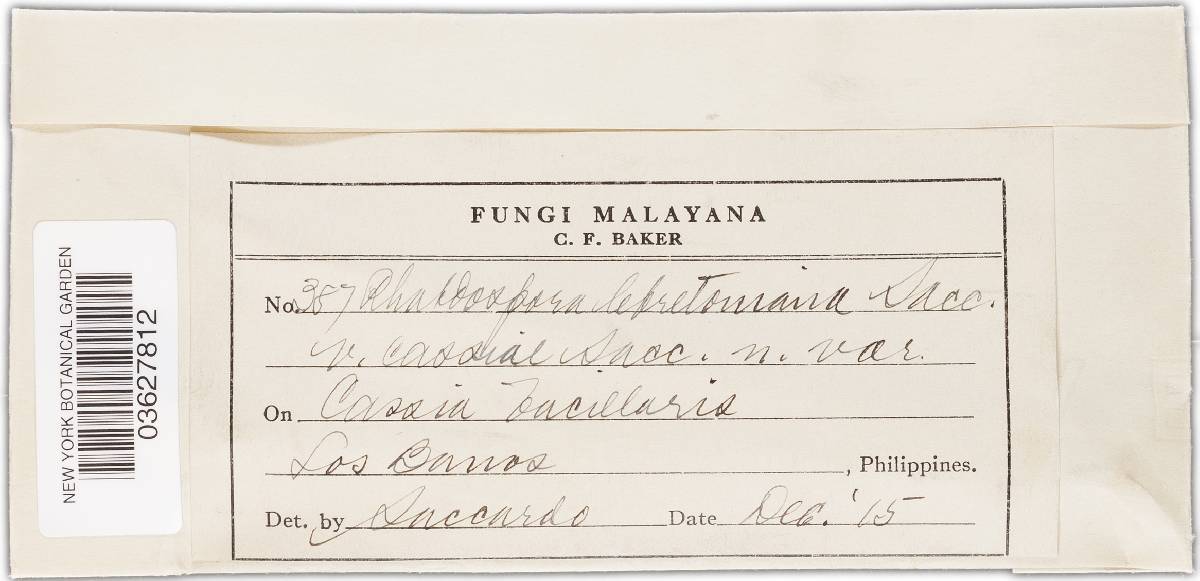 FUNGI MALAYANA
C. F. BAKER
No. 387 Rhabdospora lebretoniana Sacc.
v. Cassiae Sacc. n. var.
On Cassia bacillaris
Los Banos, Philippines.
Det. by Saccardo Date Dec. '15
NEW YORK BOTANICAL GARDEN
03627812